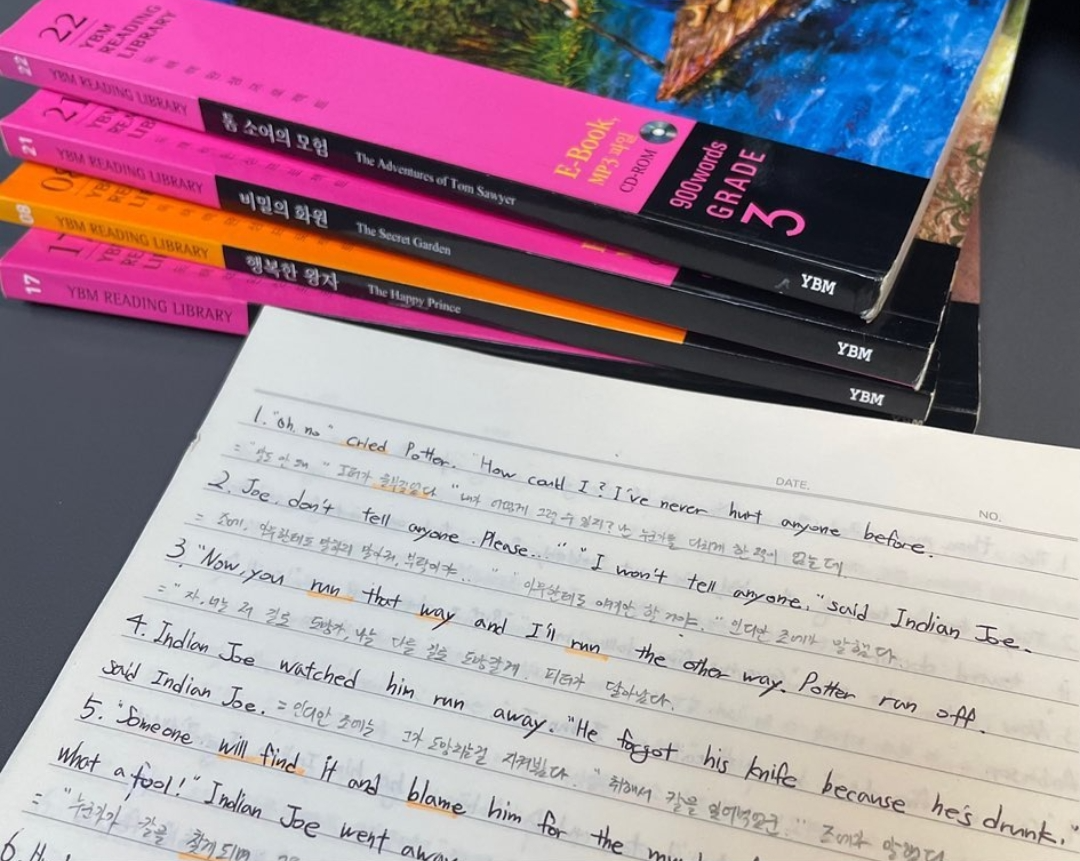 22
YBM
READING
LIBRARY
22
YBM READING LIBRARY
톰 소여의 모험
The Adventures of Tom Sawyer
E-Book,
MP3 파일
CD-ROM
900words
GRADE
3
YBM
21
21
YBM READING LIBRARY
비밀의 화원
The Secret Garden
YBM
08
YBM READING LIBRARY
행복한 왕자
The Happy Prince
YBM
17
YBM READING LIBRARY
DATE.
NO.
1. "Oh, no" cried Potter. "How could I? I've never hurt anyone before.
= "말도 안 돼" "내가 어떻게 그럴 수 있지? 난 누군가를 다치게 한 적이 없는데.
2. Joe, don't tell anyone. Please..." "I won't tell anyone," said Indian Joe.
= 조에, 아무한테도 말하지 말아줘, 부탁이야..." "아무한테도 얘기안 할 거야." 인디안 조에가 말했다.
3. "Now, you run that way and I'll run the other way. Potter run off.
= "자, 너는 저 길로 도망가, 나는 다른 길로 도망갈게. 피터가 달아났다.
4. Indian Joe watched him run away. "He forgot his knife because he's drunk."
said Indian Joe. = 인디안 조에는 그가 도망치는걸 지켜봤다. "취해서 칼을 잃어먹었군." 조에가 말했다
5. "Someone will find it and blame him for the
what a fool!" Indian Joe went away
= "누군가가 칼을 찾게되며
6.